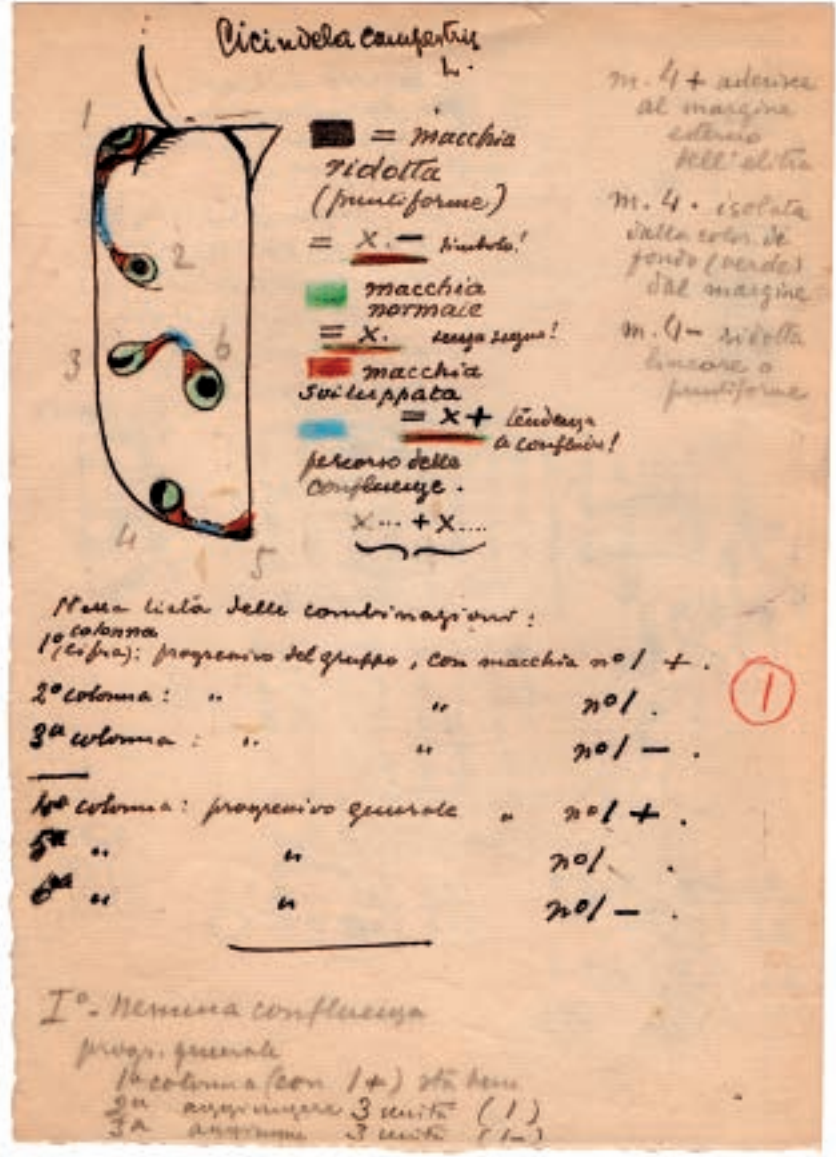 Cicindela campestris
L.
1
2
3
6
4
5
= macchia
ridotta
(puntiforme)
= X. – simbolo!
macchia
normale
= X. senza segno!
macchia
sviluppata
= X + tendenza
a confluire!
percorso delle
confluenze.
X... + X....
m. 4 + aderisce
al margine
esterno
dell'elitra
m. 4 . isolata
dalla color. di
fondo (verde)
dal margine
m. 4 – ridotta
lineare o
puntiforme
Nella lista delle combinazioni:
colonna
1ª (cifra): progressivo del gruppo, con macchia nº 1 + .
2ª colonna : " " nº 1 .
3ª colonna : " " nº 1 – .
1
4ª colonna : progressivo generale " nº 1 + .
5ª " " nº 1 .
6ª " " nº 1 – .
Iº - Nessuna confluenza
progr. generale
1ª colonna (con 1+) sta bene
2ª aggiungere 3 unità (1)
3ª 3 unità (1–)